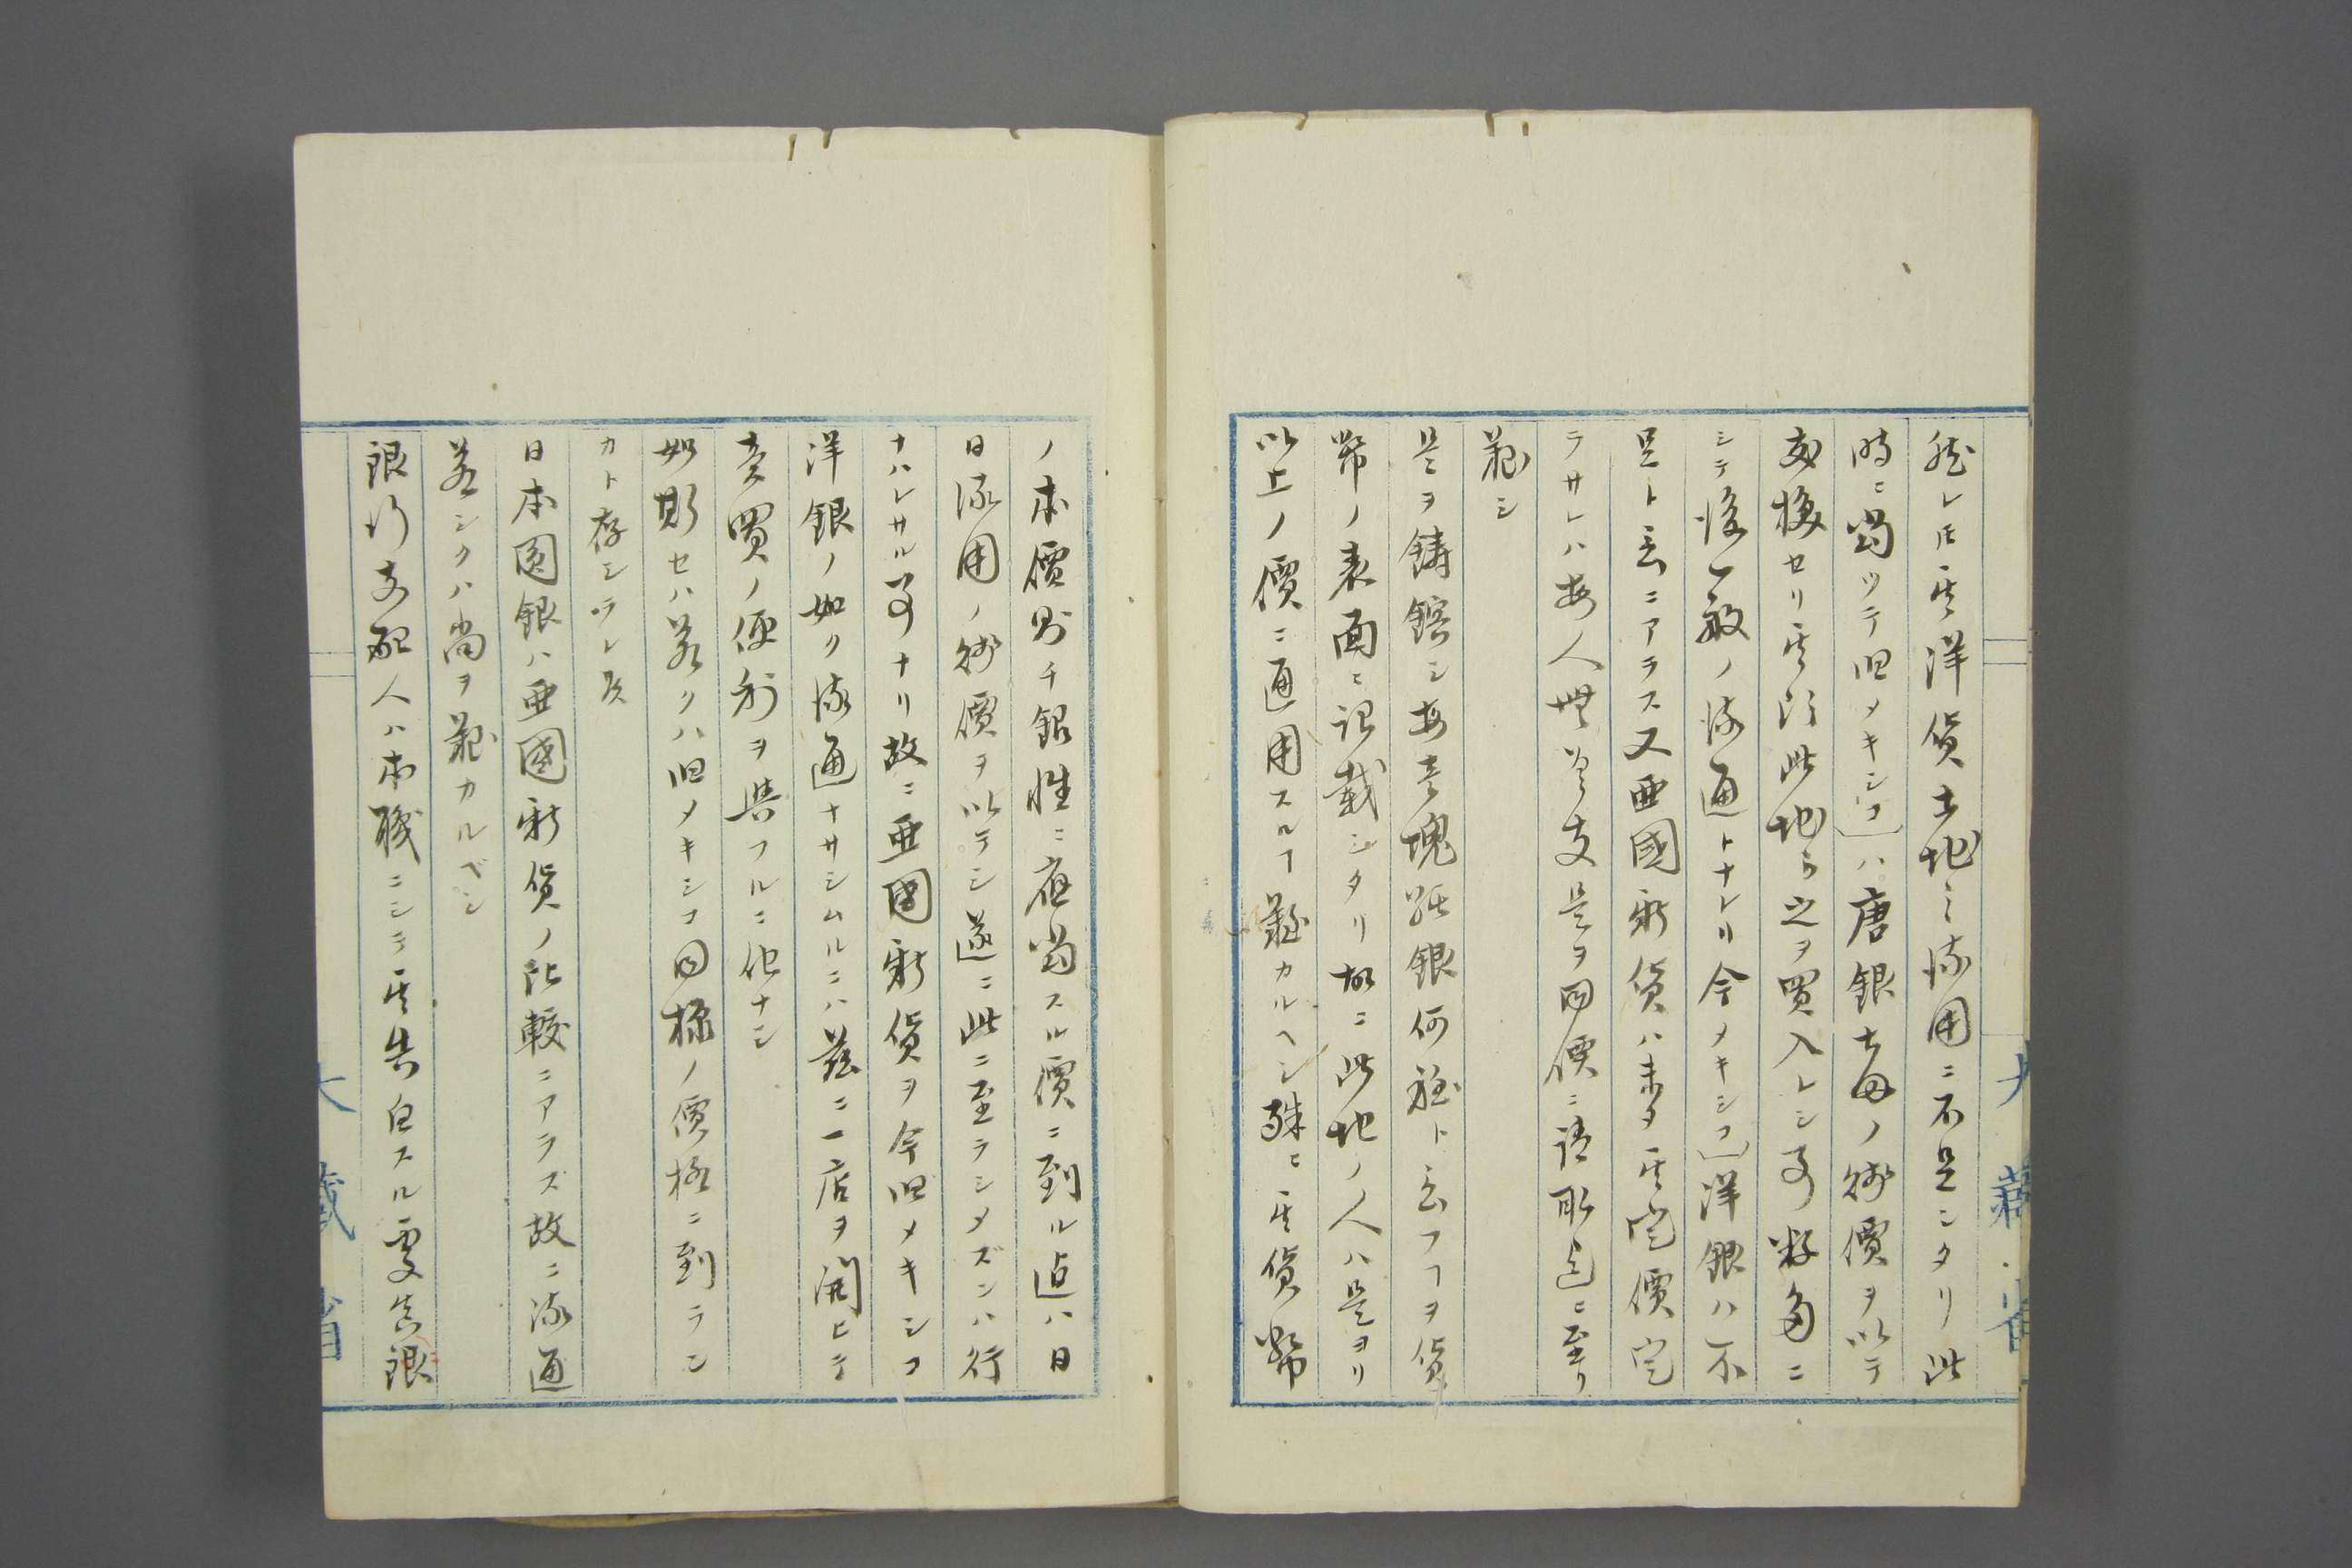 然レ𪜈其洋貨土地ニ流用ニ不足シタリ此
時ニ當ツテ旧メキシコ〕ハ唐銀七匁ノ衡價ヲ以テ
交換セリ其後此地ゟ之ヲ買入レシ事夥多ニ
シテ後一般ノ流通トナレリ今メキシコ〕洋銀ハ不
足ト云ニアラス又亜國新貨ハ未タ其定價定
ラサレハ毎人無差支是ヲ同價ニ請取迄ニ至リ
難シ
是ヲ鋳鎔シ毎壱塊純銀何程ト云フヿヲ貨
幣ノ表面ニ記載シタリ故ニ此地ノ人ハ是ヨリ
以上ノ價ニ通用スルヿ難カルヘシ殊ニ其貨幣
ノ本價則チ銀性ニ應當スル價ニ到ル迠ハ日
日流用ノ衡價ヲ以テシ遂ニ此ニ至ラシメズンハ行
ナハレサル事ナリ故ニ亜國新貨ヲ今旧メキシコ
洋銀ノ如ク流通ナサシムルニハ茲ニ一店ヲ開ヒテ
賣買ノ便利ヲ與フルニ他ナシ
如斯セハ若クハ旧メキシコ同様ノ價極ニ到ラン
カト存シラレ候
日本圓銀ハ亜國新貨ノ比較ニアラズ故ニ流通
若シクハ尚ヲ難カルベシ
銀行支配人ハ本職ニシテ其告白スル處真銀
大藏省
大藏省